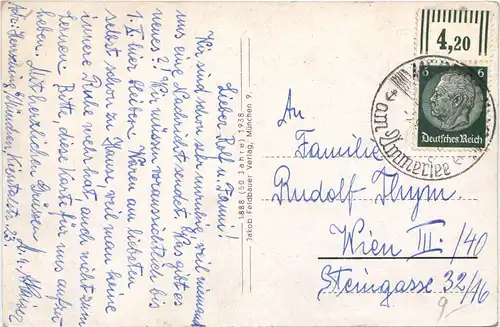 Lieber Rolf u. Fanni!
Wir sind schon sehr unruhig, weil niemand
uns eine Nachricht sendet. Was gibt es
neues? Wir voraussichtlich bis
1. X hier bleiben. Wären am liebsten
selbst schon zu Haus, weil man keine
innere Ruhe mehr hat auch nicht zum
Lernen. Bitte, diese Karte für uns aufzu-
heben. Mit herzlichen Grüssen
München,
1888 (50 Jahre) 1938
Jakob Feldbauer Verlag, München 9.
4,20
6 6
Deutsches Reich
An
Familie
Rudolf Thym
Wien III/40
Steingasse 32/16
9